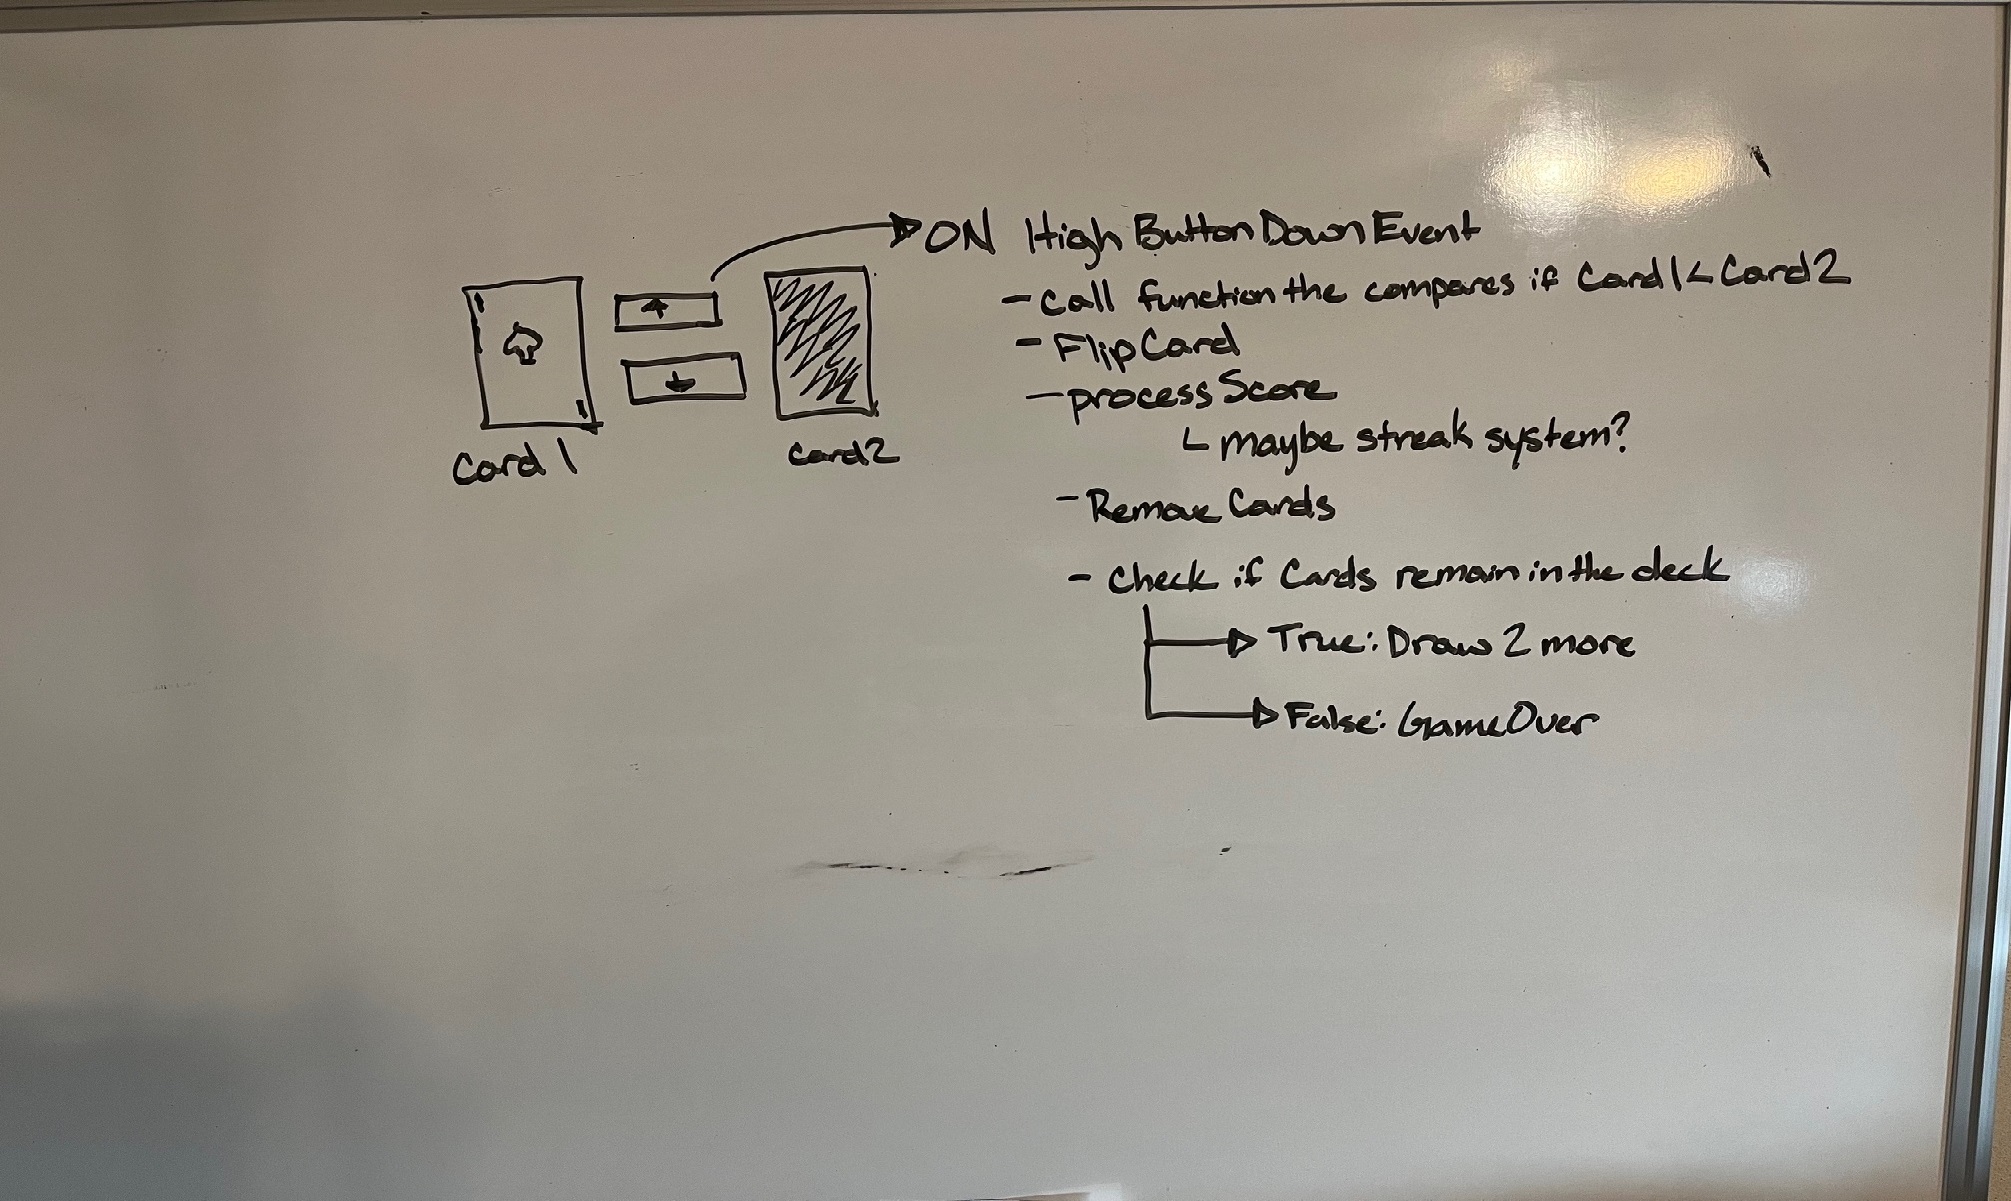 ON High Button Down Event
- Call function the compares if Card 1 < Card 2
- Flip Card
- process Score
└ maybe streak system?
- Remove Cards
- Check if Cards remain in the deck
True: Draw 2 more
False: Game Over
Card 1
Card 2